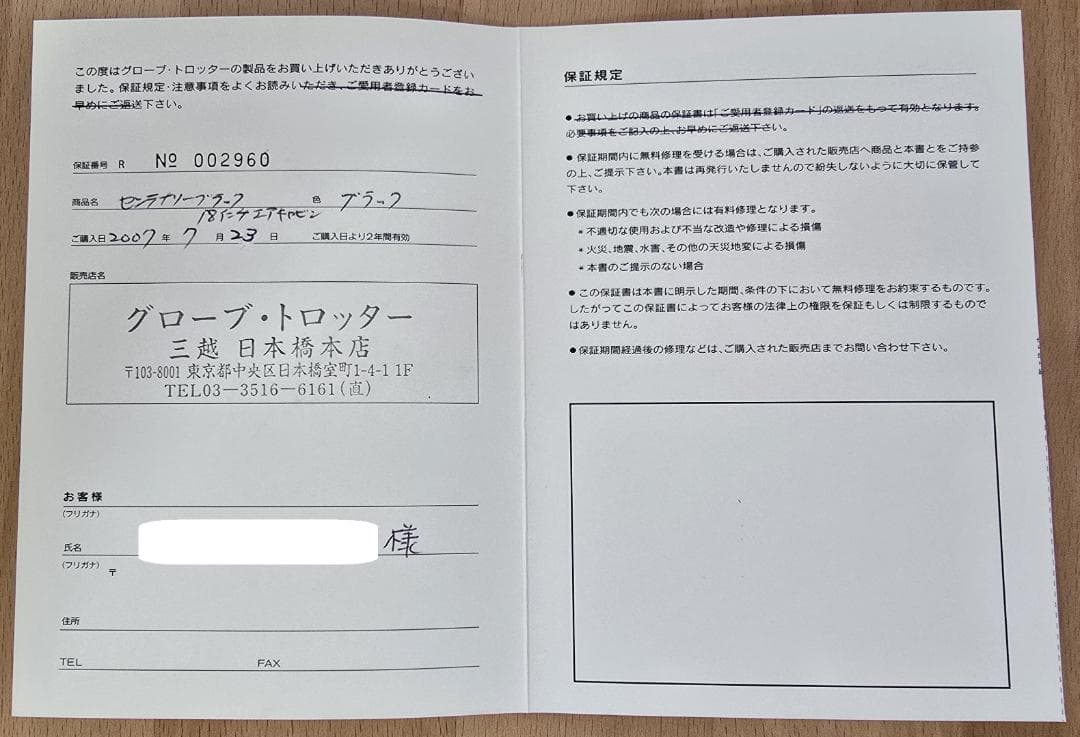 この度はグローブ・トロッターの製品をお買い上げいただきありがとうござい
ました。保証規定・注意事項をよくお読みいただき、ご愛用者登録カードをお
早めにご返送下さい。
保証番号 R № 002960
商品名 センテナリーブラック 色 ブラック
18インチエアキャビン
ご購入日 2007 年 7 月 23 日 ご購入日より2年間有効
販売店名
グローブ・トロッター
三越 日本橋本店
〒103-8001 東京都中央区日本橋室町1-4-1 1F
TEL03―3516―6161(直)
お客様
(フリガナ)
氏名 様
(フリガナ)
〒
住所
TEL FAX
保証規定
● お買い上げの商品の保証書は「ご愛用者登録カード」の返送をもって有効となります。
必要事項をご記入の上、お早めにご返送下さい。
● 保証期間内に無料修理を受ける場合は、ご購入された販売店へ商品と本書とをご持参
の上、ご提示下さい。本書は再発行いたしませんので紛失しないように大切に保管して
下さい。
● 保証期間内でも次の場合には有料修理となります。
＊不適切な使用および不当な改造や修理による損傷
＊火災、地震、水害、その他の天災地変による損傷
＊本書のご提示のない場合
● この保証書は本書に明示した期間、条件の下において無料修理をお約束するものです。
したがってこの保証書によってお客様の法律上の権限を保証もしくは制限するもので
はありません。
● 保証期間経過後の修理などは、ご購入された販売店までお問い合わせ下さい。